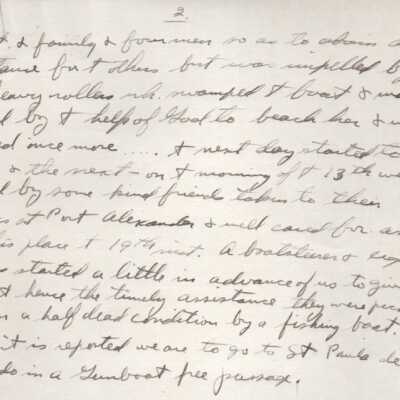 2.
& family & four men so as to obtain a
for t others but was impelled by
heavy rollers wh. swamped t boat &
by t help of God to beach her &
once more ..... t next day started to
& the next - on t morning of t 13th we
by some kind friend taken to their
at Port Alexander & well cared for. as
his place t 19th inst. A boatsteerer & six
started a little in advance of us to give
t hence the timely assistance they were
a half dead condition by a fishing boat.
it is reported we are to go to St Paula de
do in a Gunboat free passage.